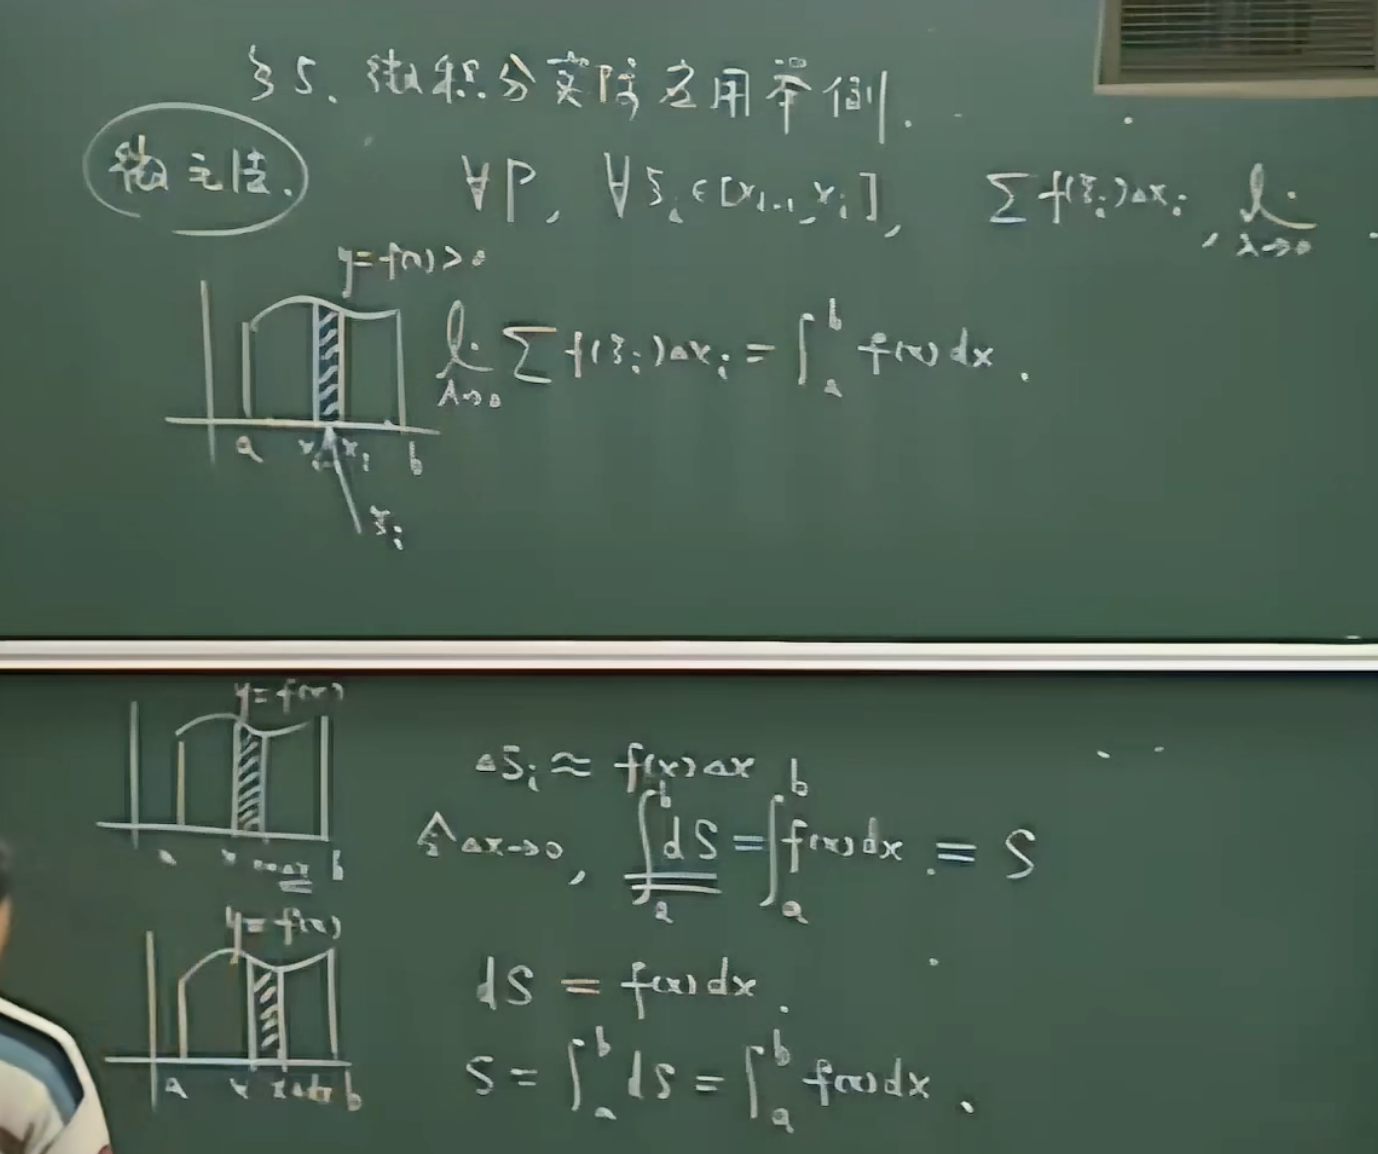 §5、微积分实际应用举例.
微元法.
∀P, ∀ξᵢ∈[xᵢ₋₁, xᵢ], ∑f(ξᵢ)Δxᵢ, lim λ→0
y=f(x)>0
lim λ→0 ∑f(ξᵢ)Δxᵢ = ∫ₐᵇ f(x)dx.
a xᵢ₋₁ xᵢ b
ξᵢ
y=f(x)
ΔSᵢ ≈ f(x)Δx
令Δx→0, ∫ₐᵇ dS = ∫ₐᵇ f(x)dx. = S
a x x+Δx b
y=f(x)
dS = f(x)dx.
a x x+dx b
S = ∫ₐᵇ dS = ∫ₐᵇ f(x)dx.